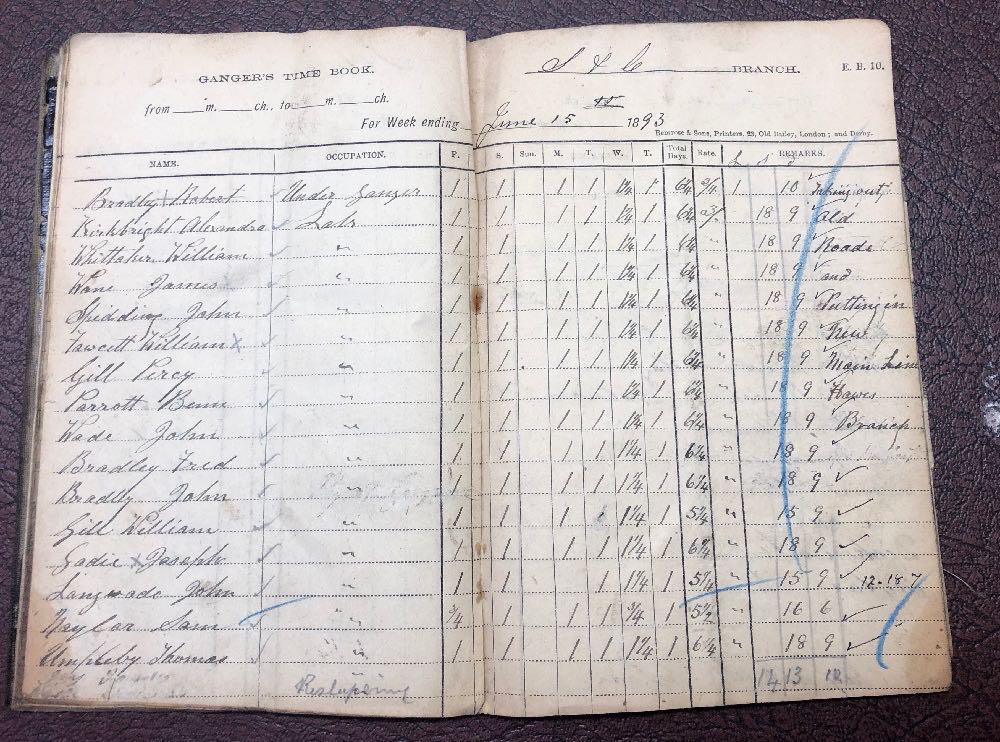 GANGER'S TIME BOOK.
from m. ch., to m. ch.
For Week ending
S & C BRANCH. E. B. 10.
June 15 1893
Bemrose & Sons, Printers, 23, Old Bailey, London; and Derby.
NAME. OCCUPATION. F. S. Sun. M. T. W. T. Total Days. Rate. REMARKS.
£ s d
Bradley Robert Under Ganger 1 1 1 1 1¼ 1 6¼ 1 10 Taking out
Kirkbright Alexandra Labr 1 1 1 1 1¼ 1 6¼ 3/- 18 9 old
Whittaker William " 1 1 1 1 1¼ 1 6¼ " 18 9 Roads
Wane James " 1 1 1 1 1¼ 1 6¼ " 18 9 and
Spedding John " 1 1 1 1 1¼ 1 6¼ " 18 9 Putting in
Fawcett William x " 1 1 1 1 1¼ 1 6¼ " 18 9 New
Gill Percy " 1 1 1 1 1¼ 1 6¼ " 18 9 Main Line
Parrott Benn " 1 1 1 1 1¼ 1 6¼ " 18 9 Hawes
Wade John " 1 1 1 1 1¼ 1 6¼ " 18 9 Branch
Bradley Fred " 1 1 1 1 1¼ 1 6¼ " 18 9
Bradley John " 1 1 1 1 1¼ 1 6¼ " 18 9
Gill William " 1 1 1 1¼ 1 5¼ " 15 9
Eadie x Joseph " 1 1 1 1 1¼ 1 6¼ " 18 9
Langwade John " 1 1 1 1¼ 1 5¼ " 15 9 12-18-7
Naylor Sam " ¾ 1 1 1 ¾ 1 5½ " 16 6
Umpleby Thomas " 1 1 1 1 1¼ 1 6¼ " 18 9
14 13